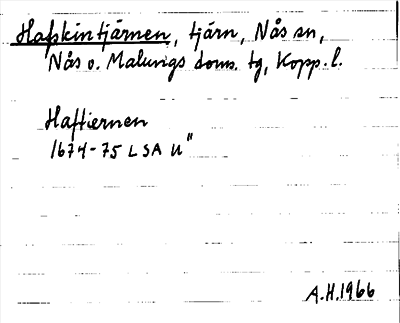 Hafskintjärnen, tjärn, Nås sn,
Nås o. Malungs doms. tg, Kopp. l.
Haftiernen
1674-75 LSA U"
A.H. 1966